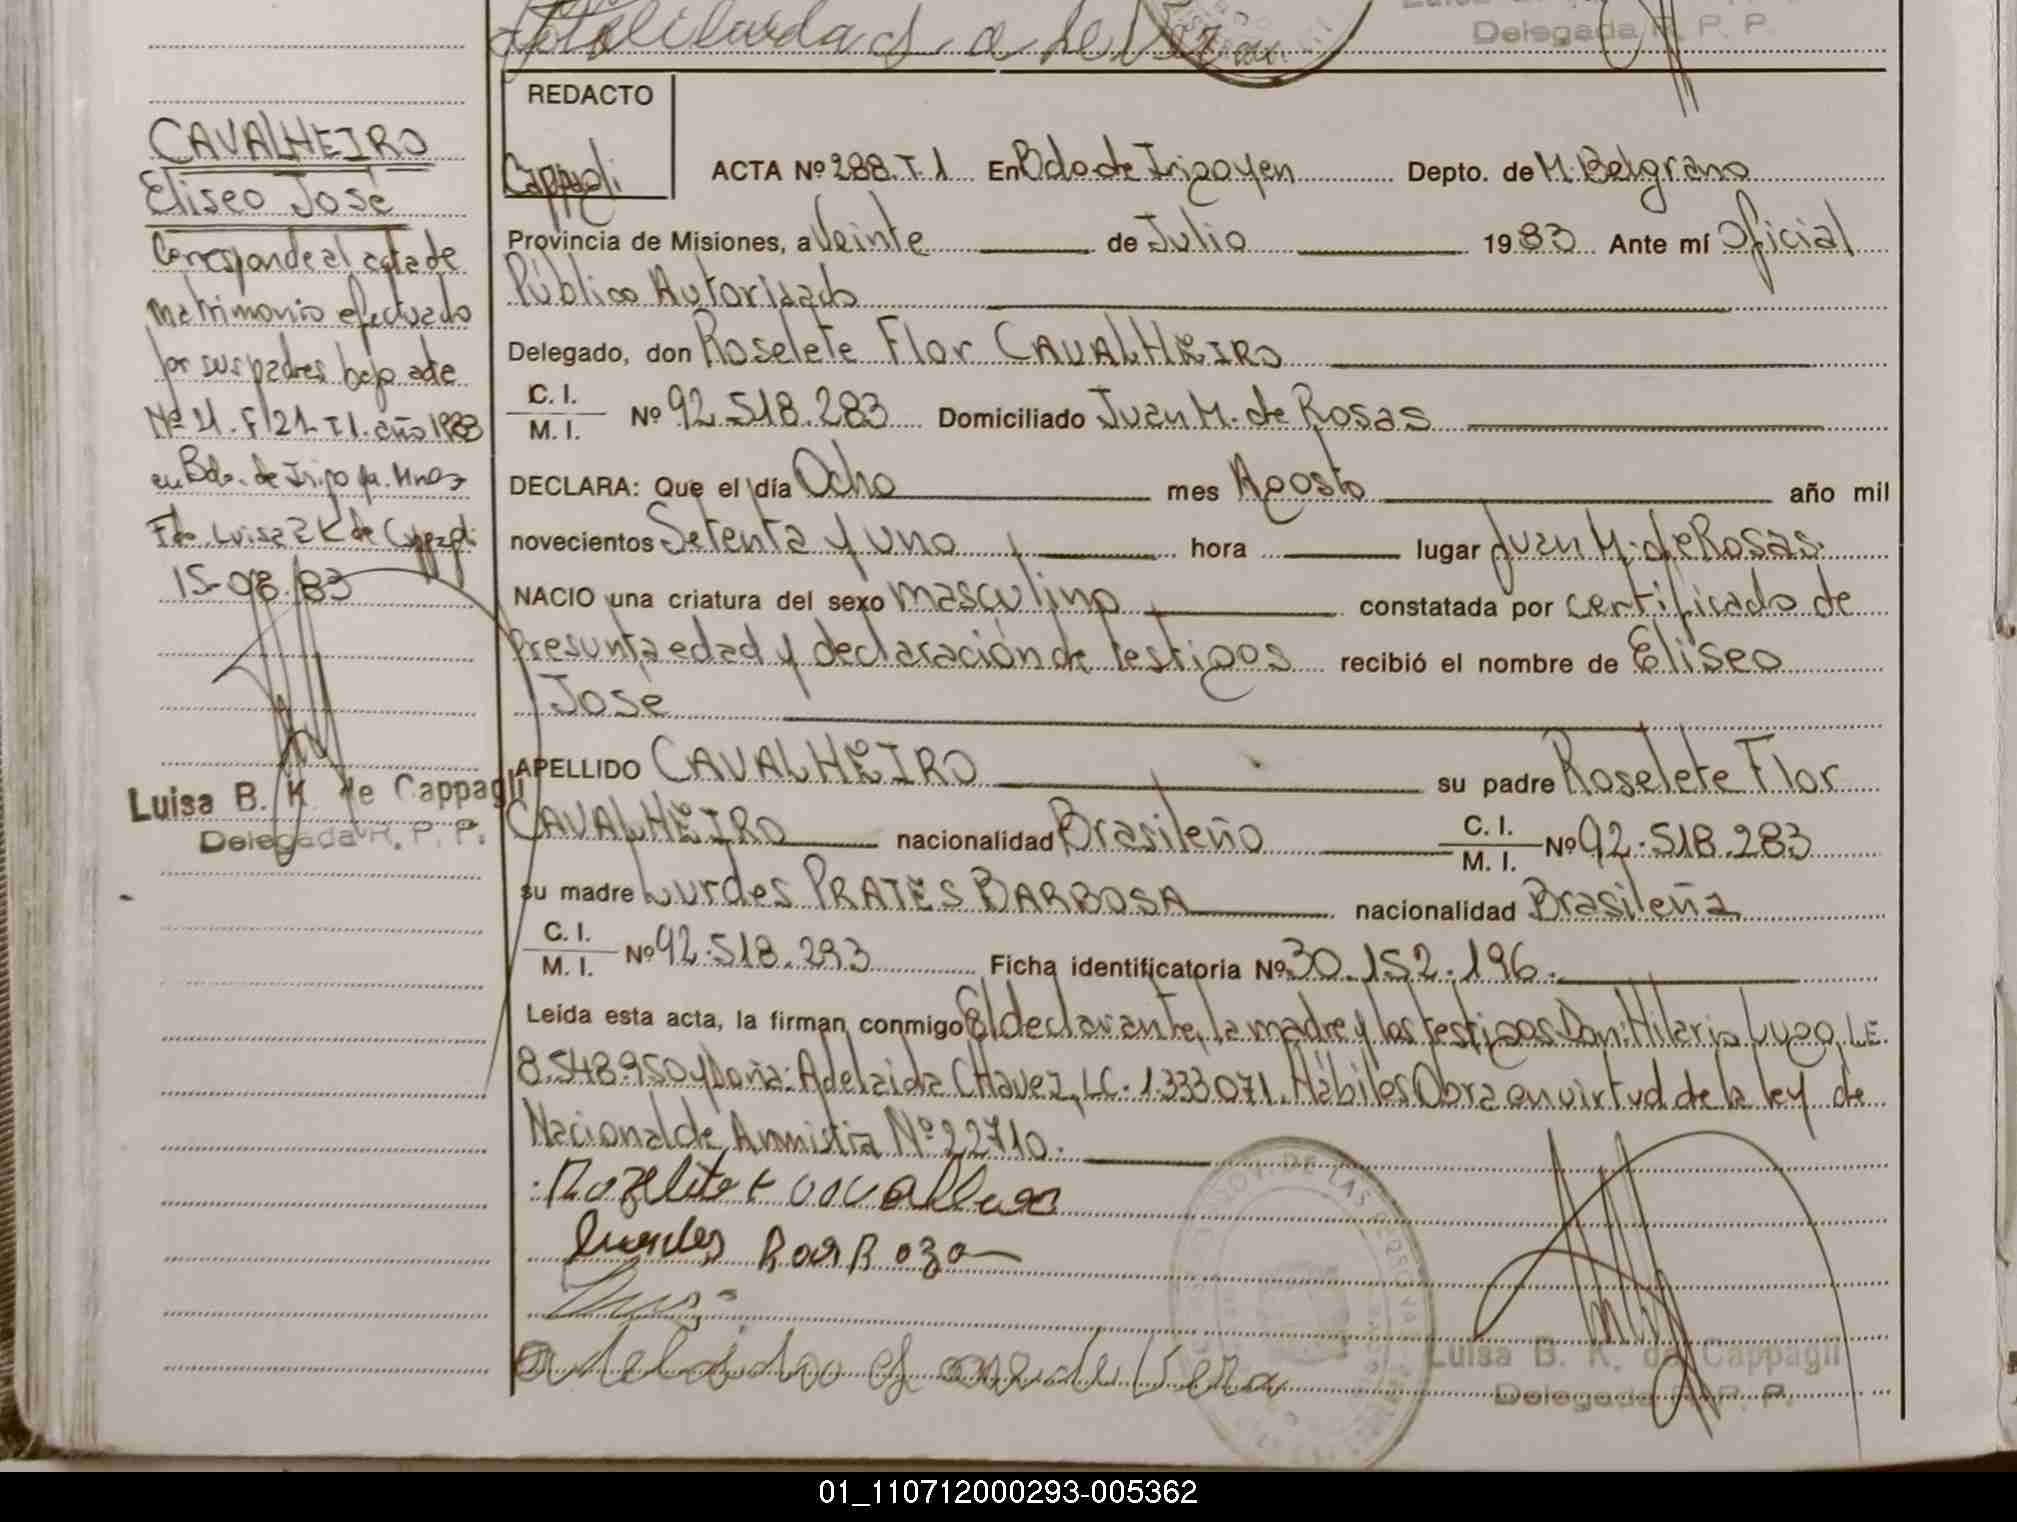 Delegada R. P. P.
REDACTO
Cappagli
ACTA Nº 288. T. 1 En Bdo. de Irigoyen Depto. de M. Belgrano
Provincia de Misiones, a Veinte de Julio 1983 Ante mí Oficial
Público Autorizado
Delegado, don Roselete Flor CAVALHEIRO
C. I.
M. I. Nº 92.518.283 Domiciliado Juan M. de Rosas
DECLARA: Que el día Ocho mes Agosto año mil
novecientos Setenta y uno hora lugar Juan M. de Rosas.
NACIO una criatura del sexo masculino constatada por certificado de
presunta edad y declaración de testigos recibió el nombre de Eliseo
José
APELLIDO CAVALHEIRO su padre Roselete Flor
CAVALHEIRO nacionalidad Brasileño C. I.
M. I. Nº 92.518.283
su madre Lurdes PRATES BARBOSA nacionalidad Brasileña
C. I.
M. I. Nº 92.518.293 Ficha identificatoria Nº 30.152.196.
Leída esta acta, la firman conmigo El declarante, la madre y los testigos Don: Hilario Lugo, L.E.
8.548.950 y Doña: Adelaida Chavez, LC. 1.333071. Hábiles Obra en virtud de la ley de
Nacional de Amnistia Nº 22710.
CAVALHEIRO
Eliseo José
Corresponde al acta de
matrimonio efectuado
por sus padres bajo acta
Nº 21. F/21. T1. año 1983
en Bdo. de Irigoyen. Mnes
Fdo. Luisa B K de Cappagli
15-08-83
Luisa B. K. de Cappagli
Delegada R. P. P.
Luisa B. K. de Cappagli
Delegada R. P. P.
01_110712000293-005362